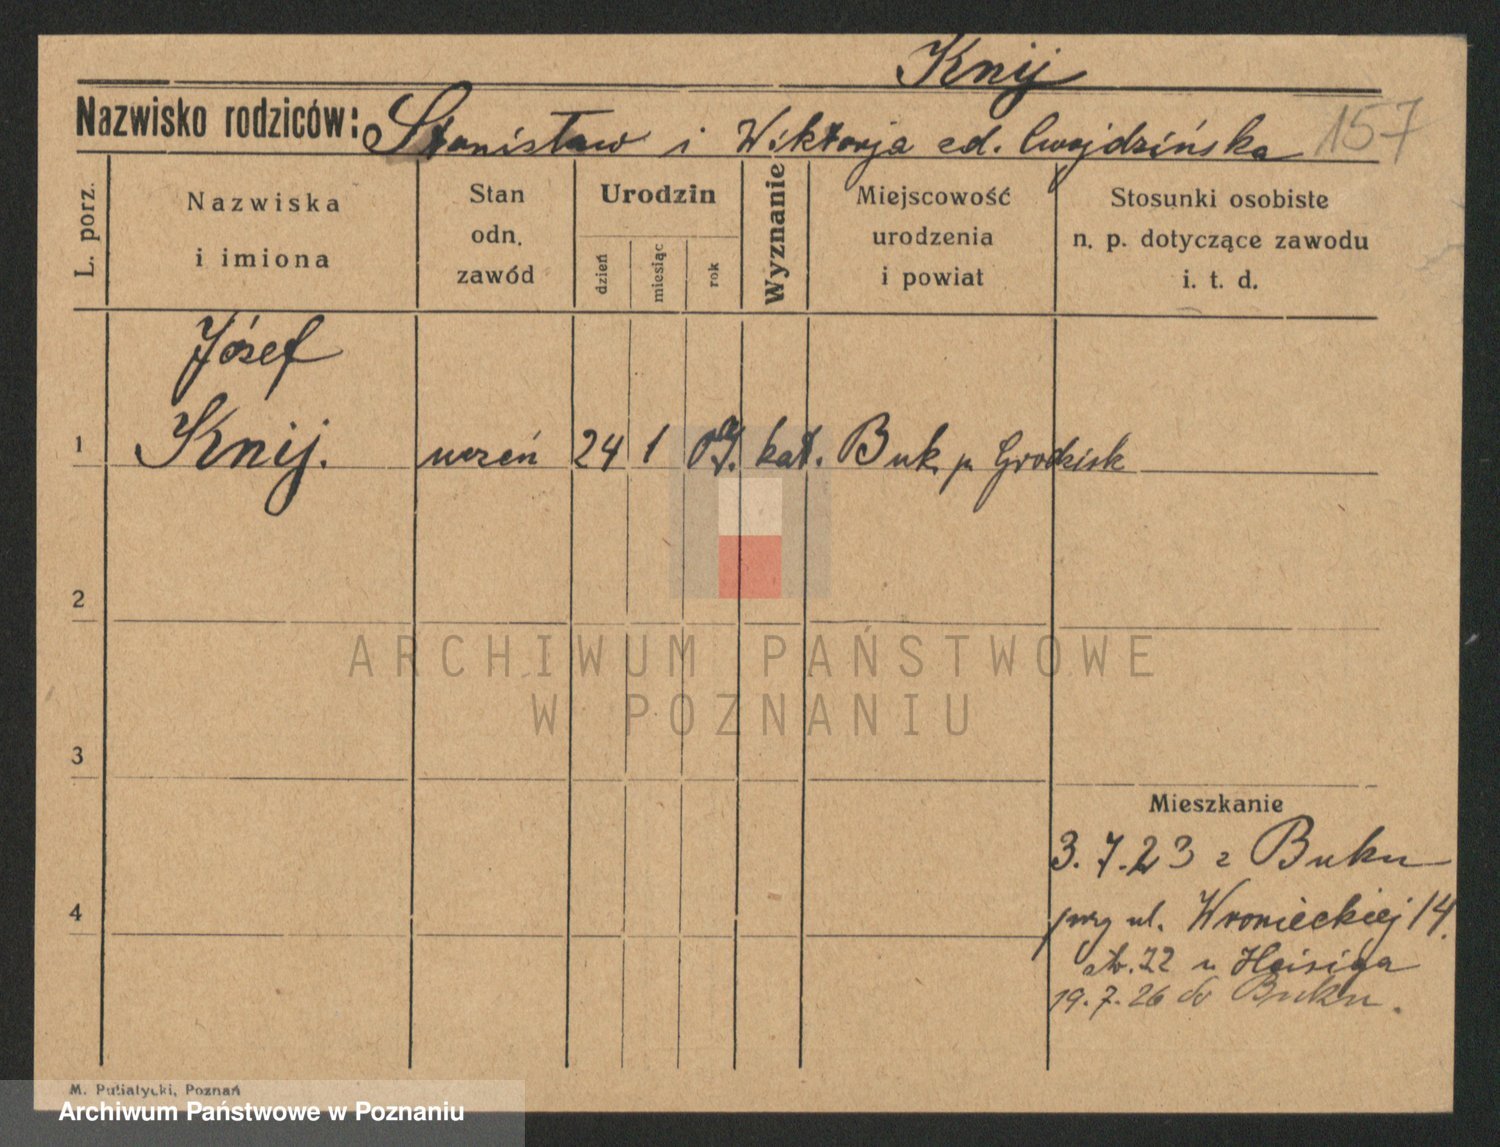 Knij
Nazwisko rodziców: Stanisław i Wiktorja zd. Cwojdzińska 157
L. porz.
Nazwiska
i imiona
Stan
odn.
zawód
Urodzin
dzień
miesiąc
rok
Wyznanie
Miejscowość
urodzenia
i powiat
Stosunki osobiste
n. p. dotyczące zawodu
i. t. d.
Józef
1 Knij. uczeń 24 1 kat. Buk. p. Grodzisk
2
3
4
Mieszkanie
3.7.23 z Buku
przy ul. Wronieckiej 14.
u Heisiga
19.7.26 do Buku.
ARCHIWUM PAŃSTWOWE
W POZNANIU
M. Putiatycki, Poznań
Archiwum Państwowe w Poznaniu